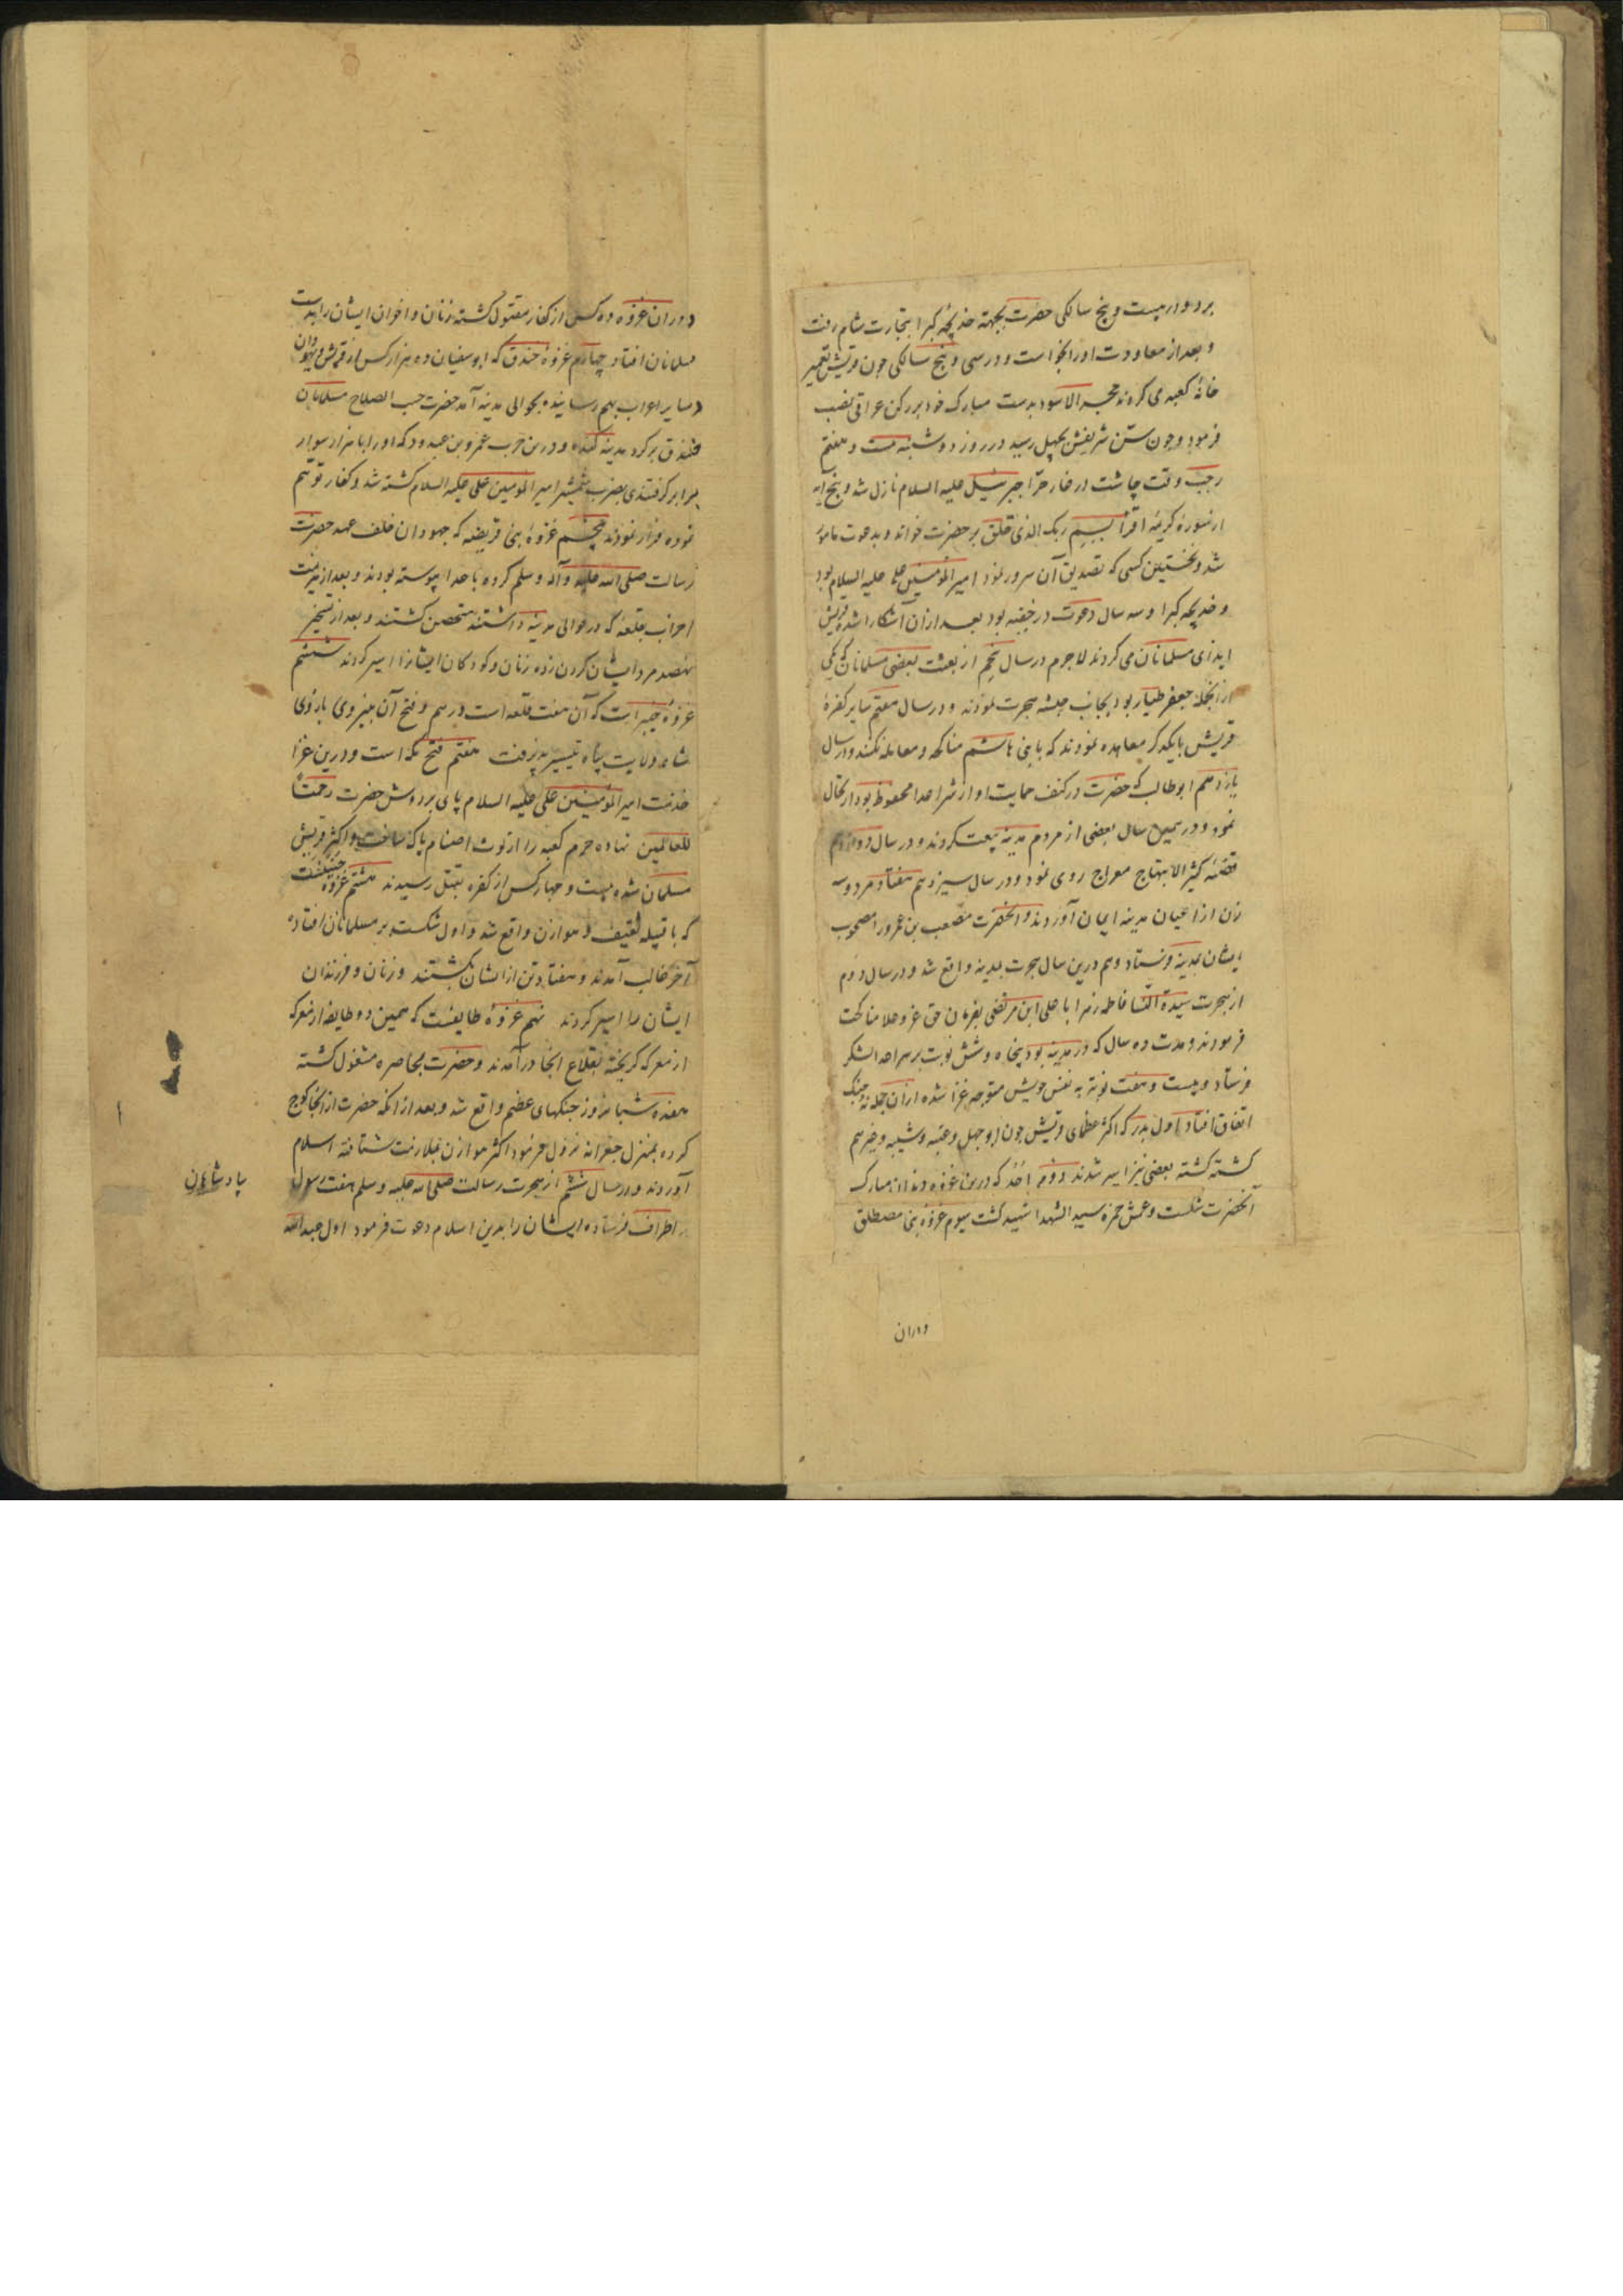 برد و در بیست و پنج سالکی حضرت بجهته خدیجه کبرا بتجارت شام رفت
و بعد از معاودت اورا بخواست و در سی و پنج سالکی چون قریش تعمیر
خانۀ کعبه می کردند حجر الاسود بدست مبارک خود بر رکن عراقی نصب
فرمود و چون سن شریفش بچهل رسید در روز دوشنبه بیست و هفتم
رجب وقت چاشت در غار حرا جبرئیل علیه السلام نازل شد و پنج آیه
از سورۀ کریمۀ اقرأ بسم ربک الذی خلق بر حضرت خواند و بدعوت مامور
شد و نخستین کسی که تصدیق آن سرور نمود امیر المؤمنین علی علیه السلام بود
و خدیجه کبرا و سه سال دعوت در خفیه بود بعد ازان آشکارا شد و قریش
ایذای مسلمانان می کردند لاجرم در سال پنجم از بعثت بعضی مسلمانان که یکی
از انجمله جعفر طیار بود بجانب حبشه هجرت نمودند و در سال هفتم سایر کفرۀ
قریش با یکدکر معاهده نمودند که با بنی هاشم مناکحه و معامله نکنند و در سال
یازدهم ابوطالب که حضرت در کنف حمایت او از شر اعدا محفوظ بود ارتحال
نمود و در همین سال بعضی از مردم مدینه بیعت کردند و در سال دوازدهم
قضیۀ کثیر الابتهاج معراج روی نمود و در سال سیزدهم هفتاد مرد و سه
زن از اعیان مدینه ایمان آوردند و آنحضرت مصعب بن عمرو را مصحوب
ایشان بمدینه فرستاد و هم درین سال هجرت بمدینه واقع شد و در سال دوم
از هجرت سیدة النسا فاطمه زهرا با علی ابن مرتضی بفرمان حق عز و علا مناکحت
فرمودند و مدت ده سال که در مدینه بود پنجاه و شش نوبت بر سر اعدا لشکر
فرستاد و بیست و هفت نوبة به نفس خویش متوجه غزا شده ازان جمله نه جنک
اتفاق افتاد اول بدر که اکثر عظمای قریش چون ابوجهل و عتبه و شیبه و غیرهم
کشته کشته بعضی نیز اسیر شدند دوم احد که درین غزوه دندان مبارک
آنحضرت شکست و عمش حمزه سید الشهدا شهید کشت سیوم غزوۀ بنی مصطلق
و دران
و دران غزوه ده کس از کفار مقتول کشته زنان و اخوان ایشان را بدست
مسلمانان افتاد چهارم غزوۀ خندق که ابوسفیان ده هزار کس از قریش و یهودان
و سایر اعراب بهم رسانیده بحوالی مدینه آمد حضرت حسب الصلاح مسلمانان
خندق بر کرد مدینه کنده و درین حرب عمرو بن عبدود که اورا با هزار سوار
برابر کرفتندی بضرب شمشیر امیر المومنین علی علیه السلام کشته شد و کفار توهم
نموده فرار نمودند پنجم غزوۀ بنی قریضه که جهودان خلف عهد حضرت
رسالت صلی الله علیه وآله وسلم کرده باعدا پیوسته بودند و بعد از هزیمت
احزاب بقلعه که در حوالی مدینه داشتند متحصن کشتند و بعد از تسخیر
نهصد مرد ایشان کردن زده زنان و کودکان ایشانرا اسیر کردند ششم
غزوۀ خیبر است که آن هفت قلعه است درهم و فتح آن بنیروی بازوی
شاه ولایت پناه تیسیر پذیرفت هفتم فتح مکه است و درین غزا
حضرت امیر المؤمنین علی علیه السلام پای بر دوش حضرت رحمة
للعالمین نهاده حرم کعبه را از لوث اصنام پاک ساخت و اکثر قریش
مسلمان شده بیست و چهار کس از کفره بقتل رسیدند هشتم غزوۀ حنینست
که با قبیله ثقیف و هوازن واقع شد و اول شکست بر مسلمانان افتاده
آخر غالب آمدند و هفتاد تن از ایشان بکشتند و زنان و فرزندان
ایشان را اسیر کردند نهم غزوۀ طایفست که همین دو طایفه از معرکه
از معرکه کریخته بقلاع انجا درآمدند و حضرت بمحاصره مشغول کشته
هفده شبانروز جنکهای عظیم واقع شد و بعد از انکه حضرت از انجا کوچ
کرده بمنزل جعرانه نزول فرمود اکثر هوازن بملازمت شتافته اسلام
آوردند و در سال ششم از هجرت رسالت صلی الله علیه وسلم هفت رسول
پادشاهان
اطراف فرستاده ایشان را بدین اسلام دعوت فرمود اول عبدالله